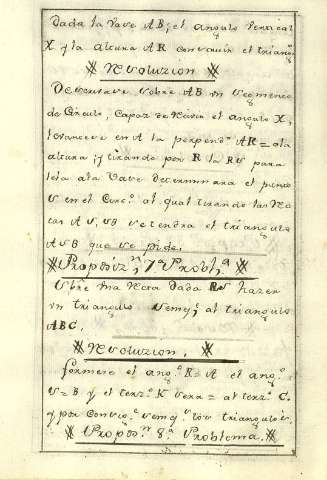 Dada la Vave AB; el angulo Vertical
X y la altura AR construir el triang.º
Revoluzion
Descrivase sobre AB un segmento
de Circulo, capaz de recivir el angulo X,
levantese en A la perpend.r AR = ala
altura; y tirando por R la RS para
lela ala Vave determinara el punto
S en el Circ.º al qual tirando las Rec
tas AS, SB se tendra el triangulo
ASB que se pide.
Proposiz.n 7.ª Probl.ª
Sobre una Recta dada RS hazer
vn triangulo semej.e al triangulo
ABC.
Revoluzion.
formese el ang.º R = A el ang.º
S = B y el terz.º K sera = al terz.º C.
y por consig.te semej.s los triangulos.
Propos.n 8.ª Problema.